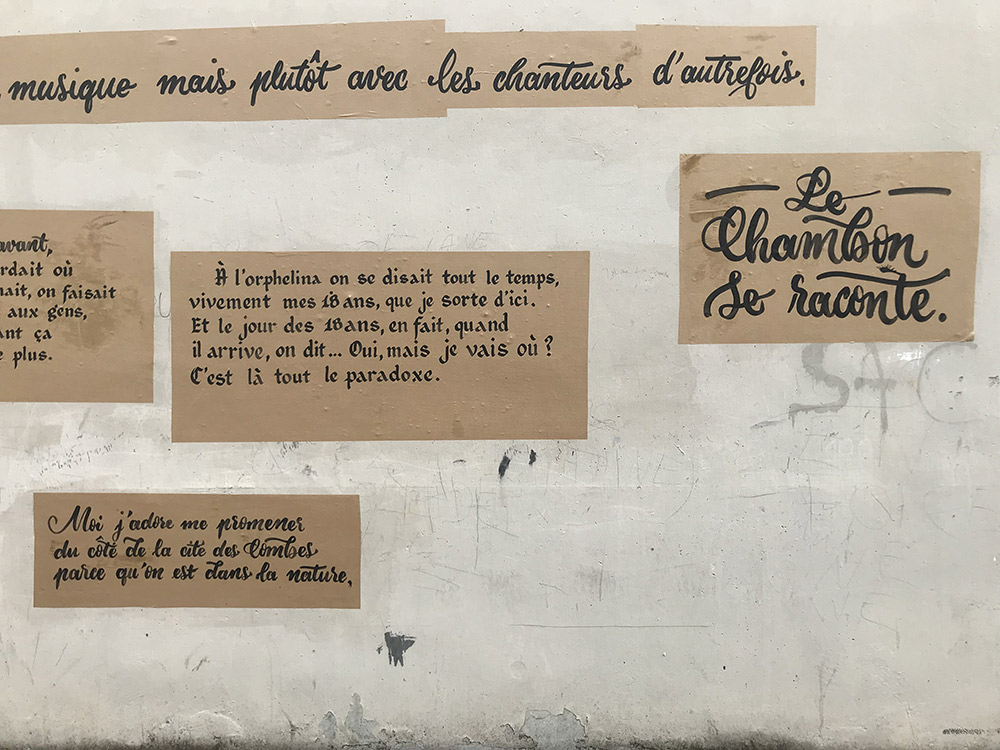 musique mais plutôt avec les chanteurs d'autrefois.
Le
Chambon
se raconte.
avant,
rdait où
nait, on faisait
aux gens,
ant ça
e plus.
À l'orphelina on se disait tout le temps,
vivement mes 18 ans, que je sorte d'ici.
Et le jour des 18 ans, en fait, quand
il arrive, on dit... Oui, mais je vais où ?
C'est là tout le paradoxe.
Moi j'adore me promener
du côté de la cité des Combes
parce qu'on est dans la nature.
SAC